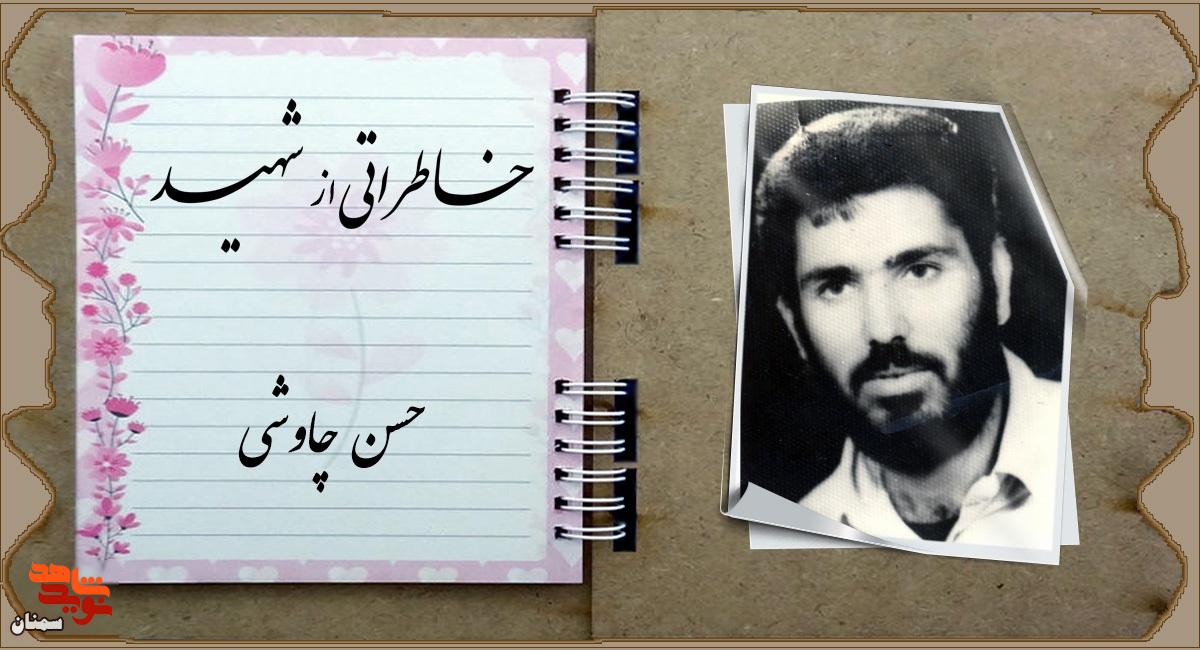 خاطراتی از شهید
حسن چاوشی
نوید شاهد
سمنان